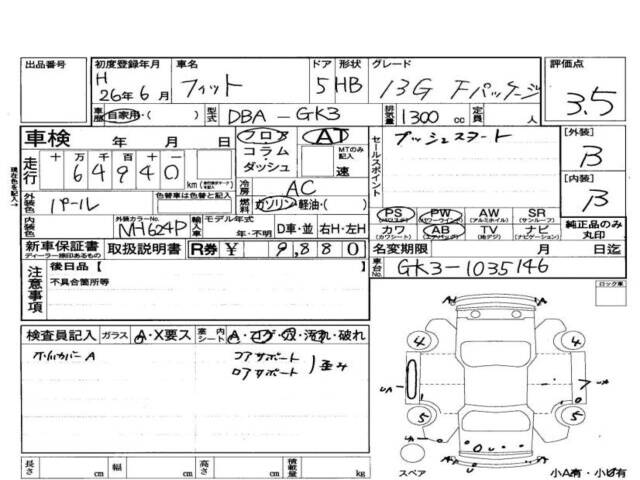 出品番号 初度登録年月 車名 ドア 形状 グレード 評価点
H 26年6月 フィット 5 HB 13G Fパッケージ 3.5
車歴 自家用・( ) 型式 DBA-GK3 排気量 1300 cc 定員 人
車検 年 月 日 フロア コラム・ダッシュ AT MTのみ記入 速 セールスポイント プッシュスタート [外装] B
走行 十 万 千 百 十 一 64940 km
現在色を記入→ 外装色 パール 色替車は色替と記入 冷房 AC [内装] B
燃料 ガソリン・軽油・( )
内装色 外装カラーNo. NH624P 輸入車 モデル年式 年・不明 D車・並 右H・左H
PS (パワステ) PW (パワーウィンド) AW (アルミホイル) SR (サンルーフ) 純正品のみ丸印
カワ (カワシート) AB (エアバッグ) TV (地デジ) ナビ (ナビゲーション)
新車保証書 ディーラー捺印あるもの 取扱説明書 R券 ¥ 9,880 名変期限 月 日迄
注意事項 後日品【 】 車台No. GK3-1035146
不具合箇所等 ロック車
検査員記入 ガラス A・X要ス 室内シート A・コゲ・穴・汚れ・破れ
ホイルカバーA コアサポート
ロアサポート 歪み
4 4
UA
5 5
長さ cm 幅 cm 高さ cm 積載量 kg スペア 小A有・小U有